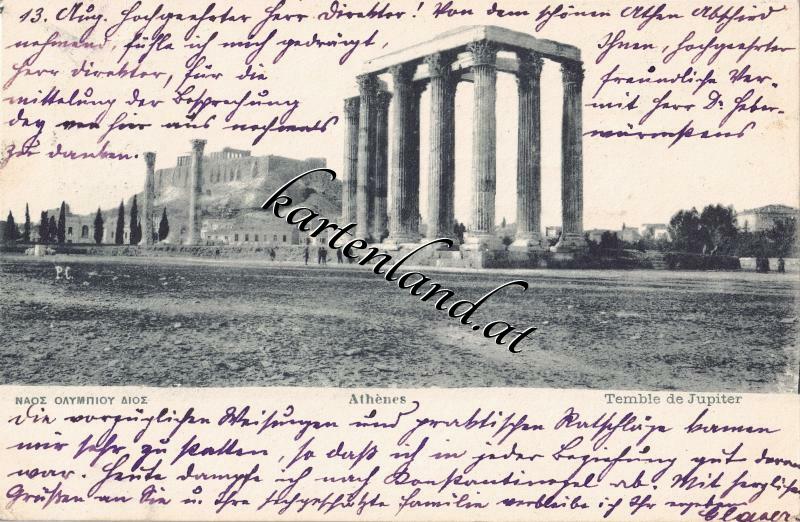 13. Aug. Hochgeehrter Herr Direktor! Von dem schönen Athen Abschied
nehmend, fühle ich mich gedrängt, Ihnen, hochgeehrter
Herr Direktor, für die freundliche Ver-
mittelung der Besprechung mit Herr Dr.
von hier aus nochmals wärmstens
zu danken.
kartenland.at
P.C
ΝΑΟΣ ΟΛΥΜΠΙΟΥ ΔΙΟΣ
Athènes
Temble de Jupiter
Die vorzüglichen Weisungen und praktischen Ratschläge kamen
mir sehr zu statten, so daß ich in jeder Beziehung gut daran
war. Heute dampfe ich nach Konstantinopel ab. Mit herzlichen
Grüßen an Sie u. Ihre hochgeschätzte Familie verbleibe ich Ihr